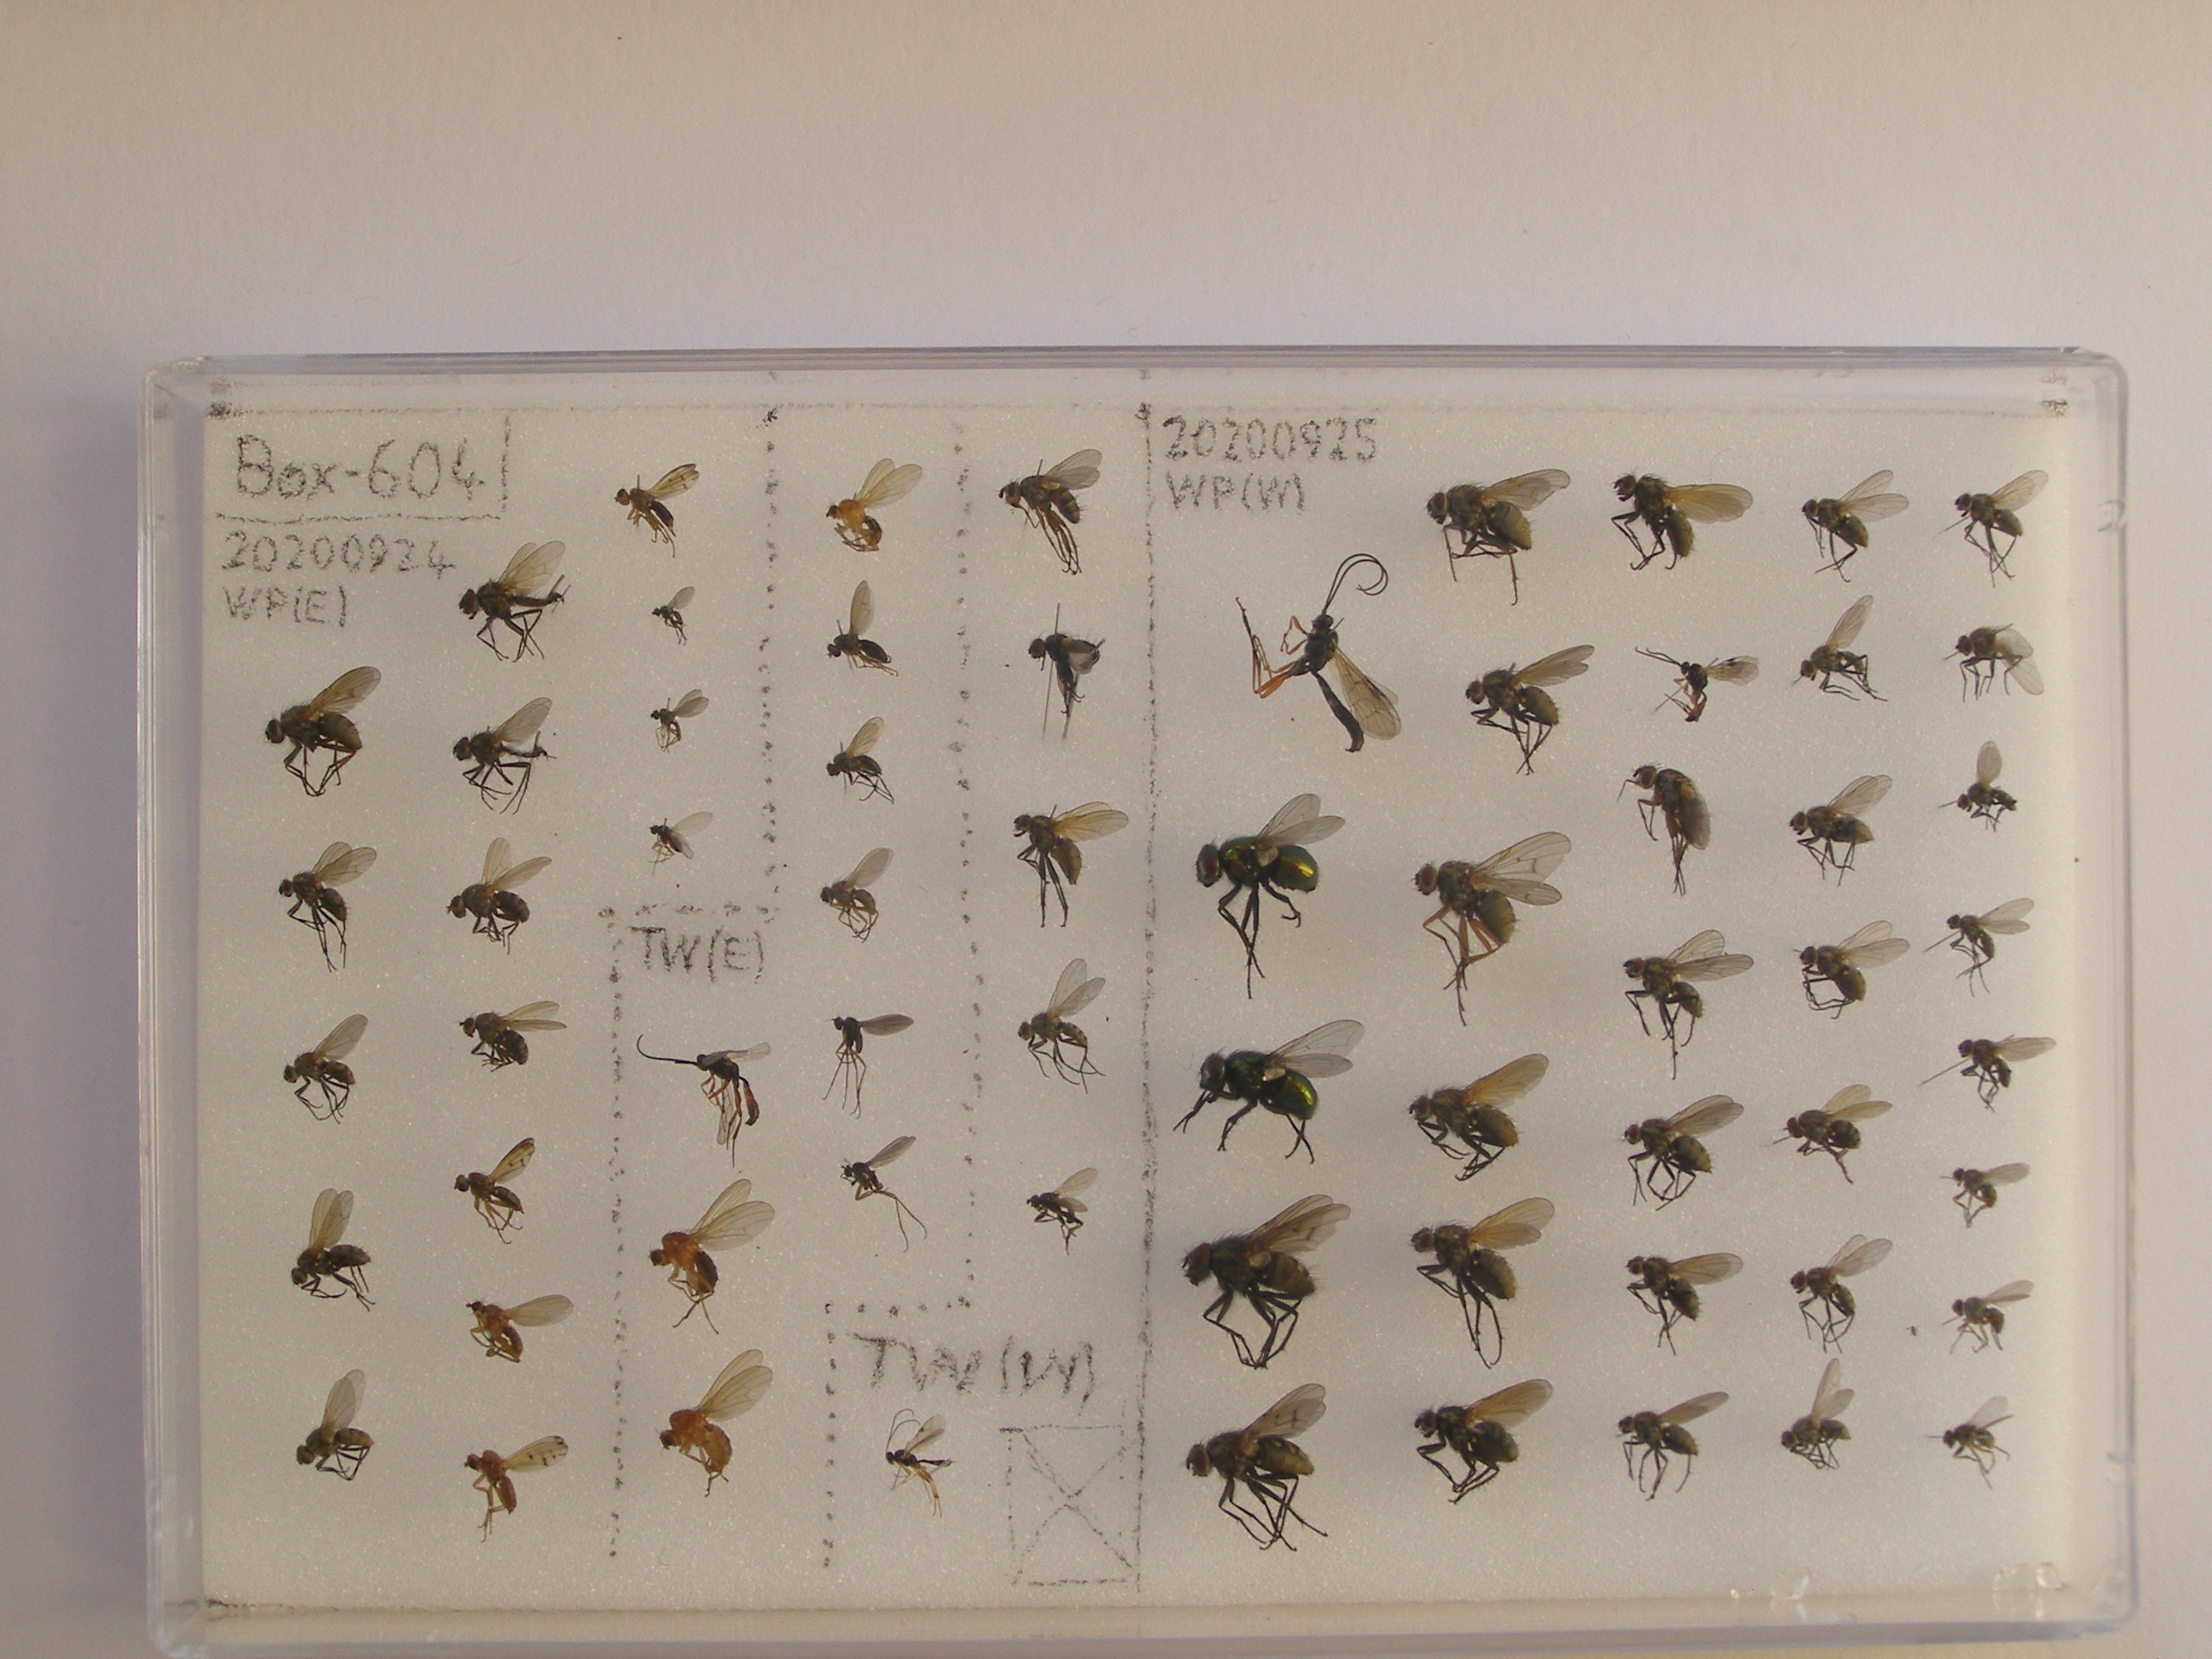 Box-604
20200924
WP(E)
TW(E)
TW(W)
20200925
WP(W)